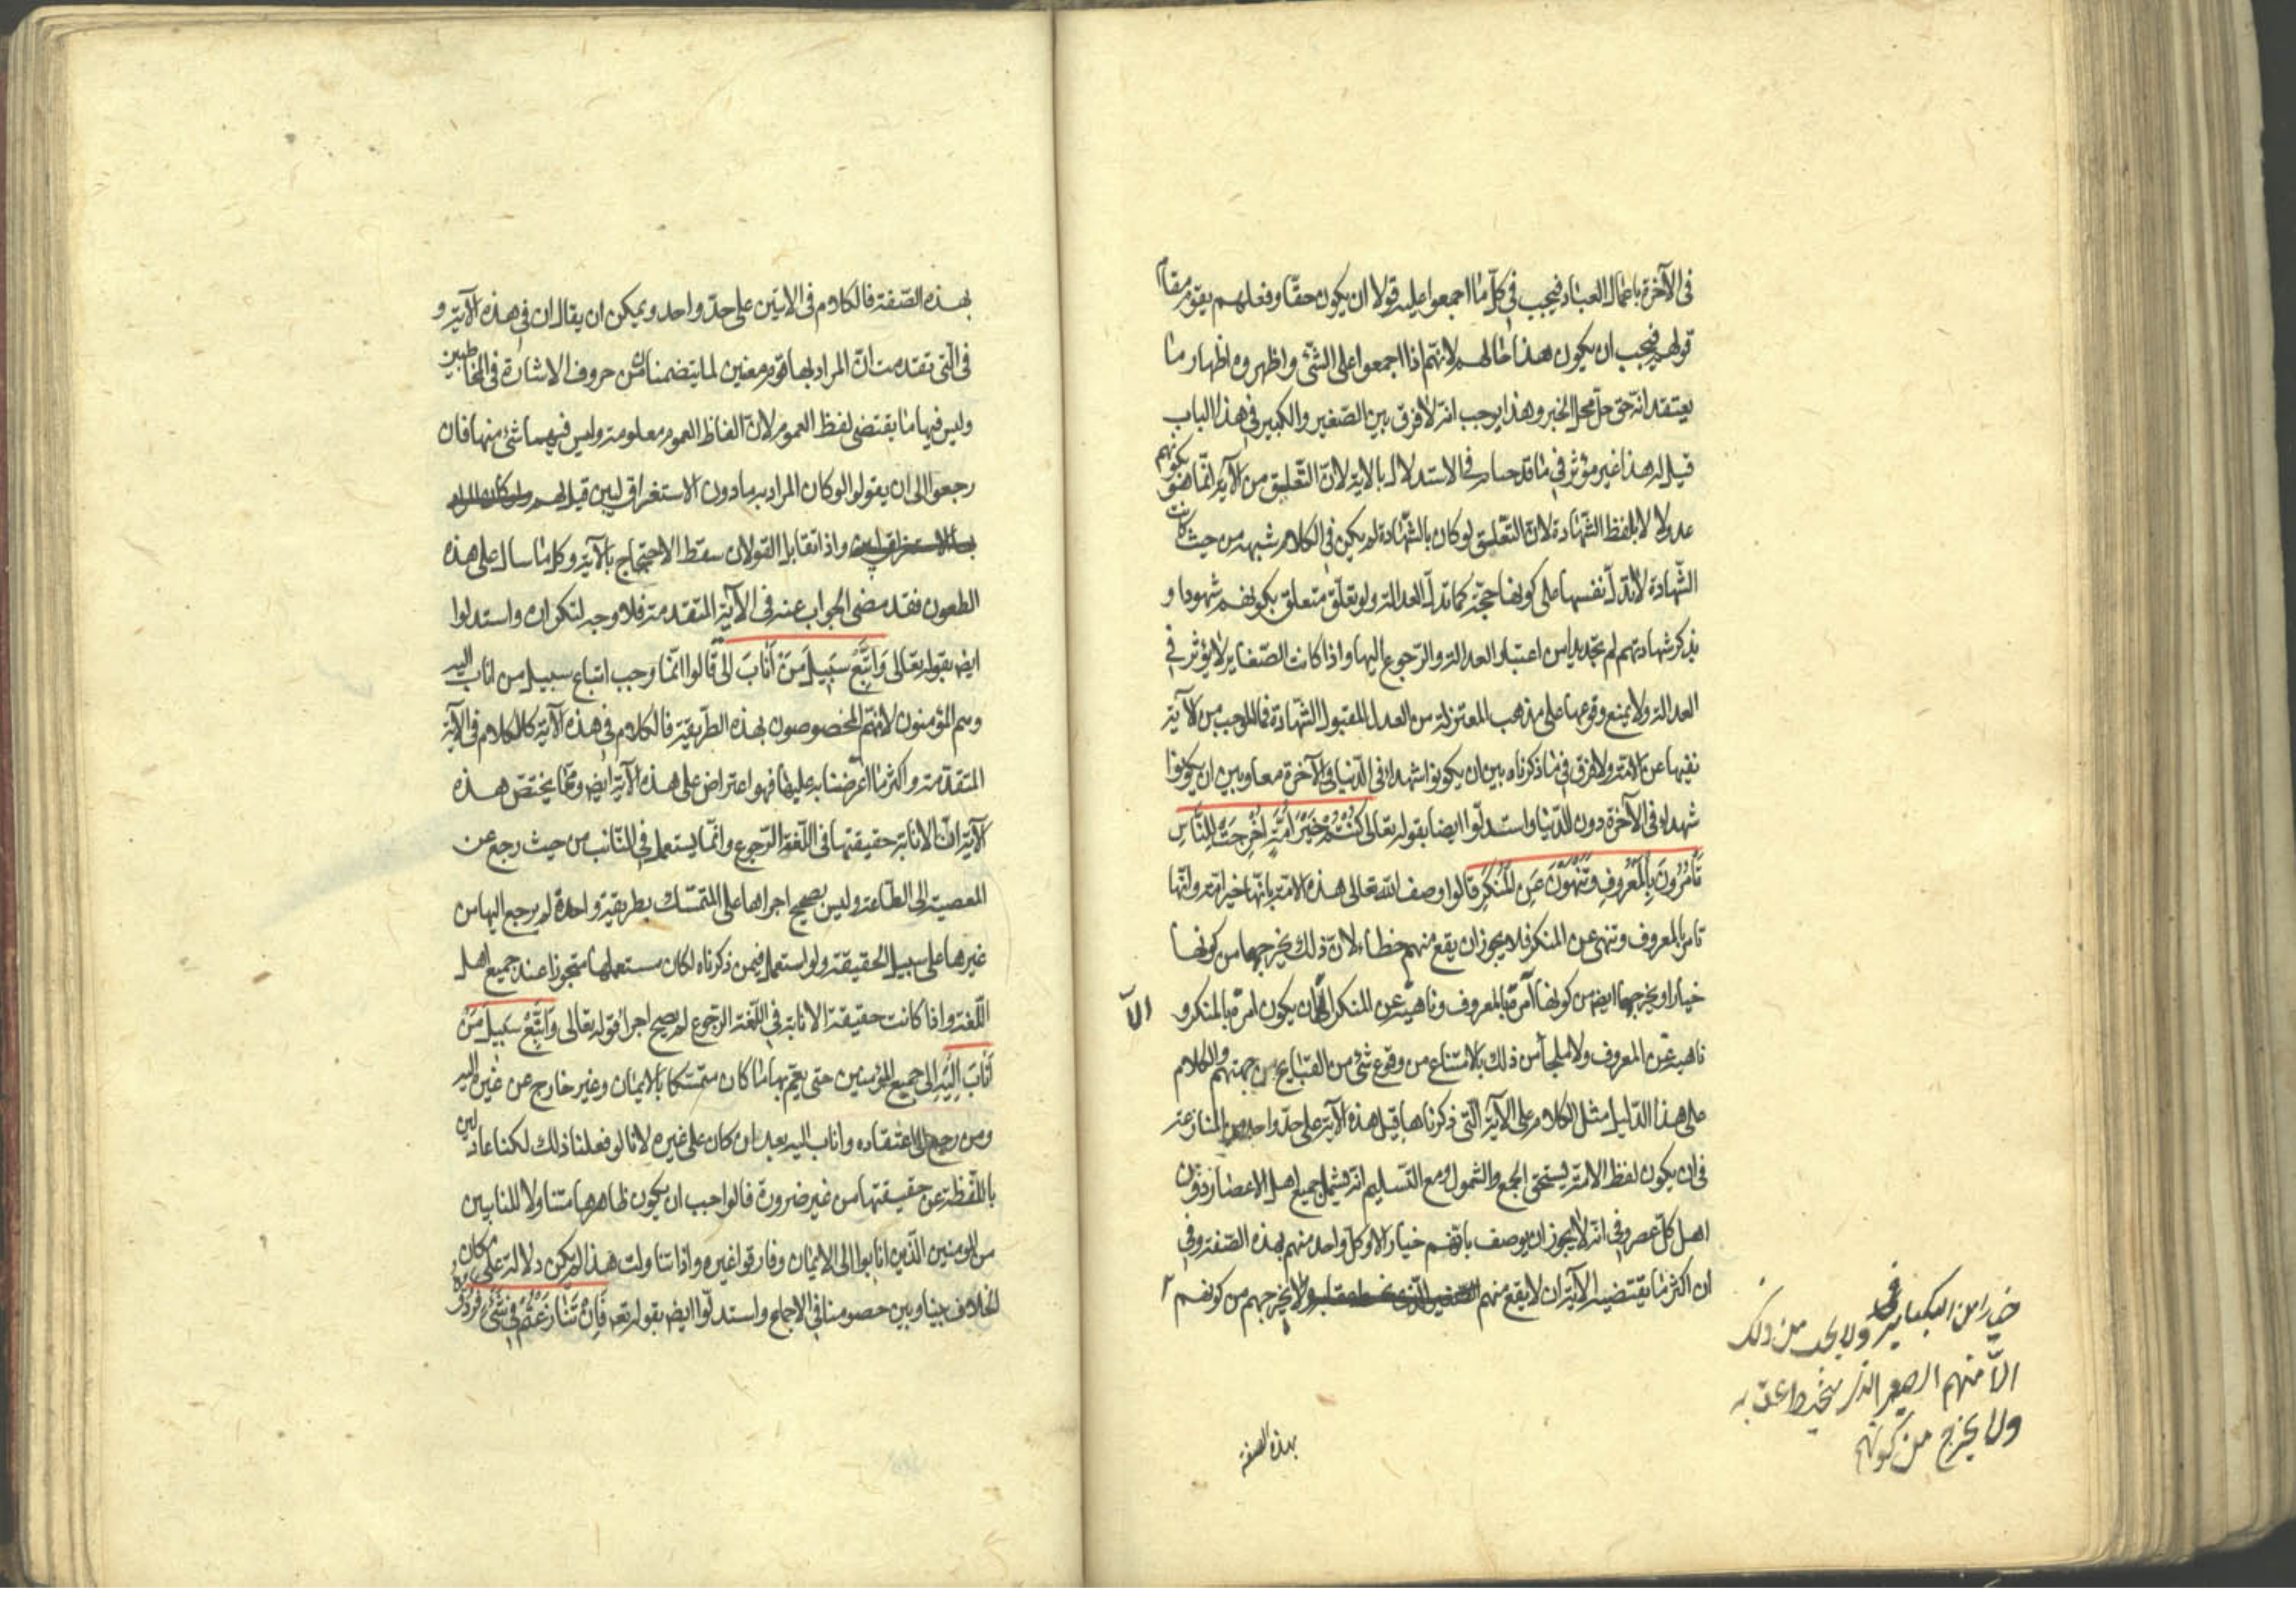 فى الآخرة باعمال العباد فيجب فى كلّ ما اجمعوا عليه قولا ان يكون حقّا وفعلهم يقوم مقام
قولهم فيجب ان يكون هذا حالهم لانّهم اذا اجمعوا على الشّئ واظهروه اظهار ما
يعتقد انّه حق حلّ محلّ الخبر وهذا يوجب انّه لا فرق بين الصّغير والكبير فى هذا الباب
قيل له هذا غير مؤثر فى ما قدحنا به فى الاستدلال بالاية لانّ التّعلّيق من الآية انّما هو بكونهم
عدولا لا بلفظ الشّهادة لانّ التّعلّق لو كان بالشّهادة لم يكن فى الكلام شبهة من حيث كانت
الشّهادة لا تدلّ نفسها على كونها حجّة كما تدلّ العدالة ولو تعلّق متعلق بكونهم شهودا و
بذكر شهادتهم لم نجد بدا من اعتبار العدالة والرّجوع اليها واذا كانت الصّغاير لا يؤثر فى
العدالة ولا يمنع وقوعها على مذهب المعتزلة من العدل المقبول الشّهادة فما الموجب من الآية
نفيها عن الامّة ولا فرق فى ما ذكرناه بين ان يكونوا شهداء فى الدّنيا فى الآخرة معا وبين ان يكونوا
شهداء فى الآخرة دون الدّنيا واستدلّوا ايضا بقوله تعالى كُنْتُمْ خَيْرَ اُمَّةٍ اُخْرِجَتْ لِلنَّاسِ
تَأْمُرُونَ بِالْمَعْرُوفِ وَتَنْهَوْنَ عَنِ الْمُنْكَرِ قالوا وصف اللّه تعالى هذه الامّة بانّها خير امّة وانّها
تامر بالمعروف وتنهى عن المنكر فلا يجوز ان يقع منهم خطاء لانّ ذلك يخرجها من كونها
خيارا ويخرجها ايض من كونها آمرة بالمعروف وناهية عن المنكر الى ان يكون امرة بالمنكر و
الّا
ناهية عن المعروف ولا ملجأ من ذلك بالامتناع من وقوع شئ من القبايح من جهتهم والكلام
على هذا الدّليل مثل الكلام على الآية الّتى ذكرناها قبل هذه الآية على حدّ واحد من المنازعة
فى ان يكون لفظ الامّة يستحق الجمع والشمول ومع التّسليم انّه يشمل جميع اهل الاعصار دون
اهل كلّ عصر وفى انّه لا يجوز ان يوصف بانهم خيار الا وكلّ واحد منهم بهذه الصّفة وفى
ان اكثر ما يقتضيه الآية ان لا يقع منهم ولا يخرجهم من كونهم
ولا من ذلك
الّا منهم به
ولا يخرج من كونهم
بهذه الصفة
بهذه الصّفة فالكلام فى الايتين على حدّ واحد ويمكن ان يقال ان فى هذه الآية و
فى الّتى تقدمت انّ المراد بها قوم معنين لما يتضمنان من حروف الاشارة فى المخاطبين
وليس فيها ما يقتضى لفظ العموم لانّ الفاظ العموم معلومة وليس فيهما شئ منها فان
رجعوا الى ان يقولوا لو كان المراد به ما دون الاستغراق لبين قيل لهم ولو كان المراد
به الاستغراق لبين واذا تقابل القولان سقط الاحتجاج بالآية وكل ما سال على هذه
الطعون فقد مضى الجواب عنه فى الآية المتقدمة فلا وجه لتكران واستدلوا
ايض بقوله تعالى وَاتَّبِعْ سَبِيلَ مَنْ أَنَابَ اِلَىَّ قالوا انّما وجب اتباع سبيل من اناب اليه
وهم المؤمنون لانّهم المخصوصون بهذه الطّريقة فالكلام فى هذه الآية كالكلام فى الآية
المتقدّمة واكثر ما اعرضنا به عليها فهو اعتراض على هذه الآية ايض وممّا يختصّ هذه
الآية انّ الانابة حقيقتها فى اللّغة الرّجوع وانّما يستعمل فى التّائب من حيث رجع عن
المعصية الى الطّاعة وليس بصحيح اجراها على المتمسّك بطريقة واحدة لم يرجع اليها من
غيرها على سبيل الحقيقة ولو استعمل فيمن ذكرناه لكان مستعملها متجوزا عند جميع اهل
اللّغة واذا كانت حقيقة الانابة فى اللّغة الرّجوع لم يصح اجراء قوله تعالى وَاتَّبِعْ سَبِيلَ مَنْ
أَنَابَ اِلَيَّ الى جميع المؤمنين حتى يعمّ بها ما كان متمسّكا بالايمان وغير خارج عن غيره اليه
ومن رجع الى اعتقاده واناب اليه بعد ان كان على غيره لانا لو فعلنا ذلك لكنا عادلين
باللّفظة عن حقيقتها من غير ضرورة فالواجب ان يكون ظاهرها متناولا للتايبين
من المومنين الّذين انابوا الى الايمان وفارقوا غيره واذا تناولت هذا لم يكن دلالة على مكان
الخلاف بيننا وبين خصومنا فى الاجماع واستدلّوا ايض بقوله تعه فَاِنْ تَنَازَعْتُمْ فِى شَىْءٍ فَرُدُّوهُ